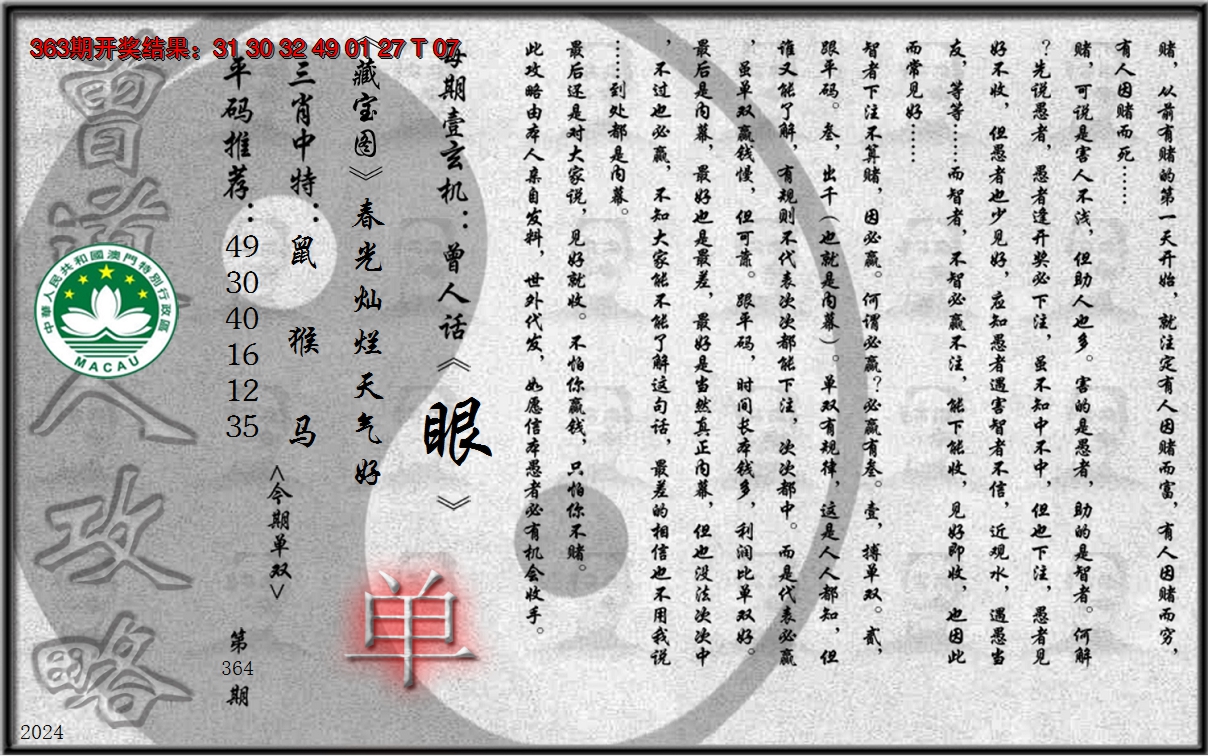 363期开奖结果：31 30 32 49 01 27 T 07
赌，从前有赌的第一天开始，就注定有人因赌而富，有人因赌而穷，
有人因赌而死……
赌，可说是害人不浅，但助人也多。害的是愚者，助的是智者。何解
？先说愚者，愚者逢开奖必下注，虽不知中不中，但也下注，愚者见
好不收，但愚者也少见好，应知愚者遇害智者不信，近观水，遇愚当
友，等等……而智者，不智必赢不注，能下能收，见好即收，也因此
而常见好……
智者下注不算赌，因必赢。何谓必赢？必赢有叁。壹，搏单双。贰，
跟平码。叁，出千（也就是内幕）。单双有规律，这是人人都知，但
谁又能了解，有规则不代表次次都能下注，次次都中。而是代表必赢
，虽单双赢钱慢，但可靠。跟平码，时间长本钱多，利润比单双好。
最后是内幕，最好也是最差，最好是当然真正内幕，但也没法次次中
，不过也必赢，不知大家能不能了解这句话，最差的相信也不用我说
……到处都是内幕。
最后还是对大家说，见好就收。不怕你赢钱，只怕你不赌。
此攻略由本人亲自发料，世外代发，如愿信本愚者必有机会收手。
每期壹玄机：曾人话《眼》
《藏宝图》春光灿烂天气好
单
三肖中特：鼠 猴 马
<今期单双>
平码推荐：49 30 40 16 12 35
第364期
曾道人攻略
中華人民共和國澳門特別行政區
MACAU
2024